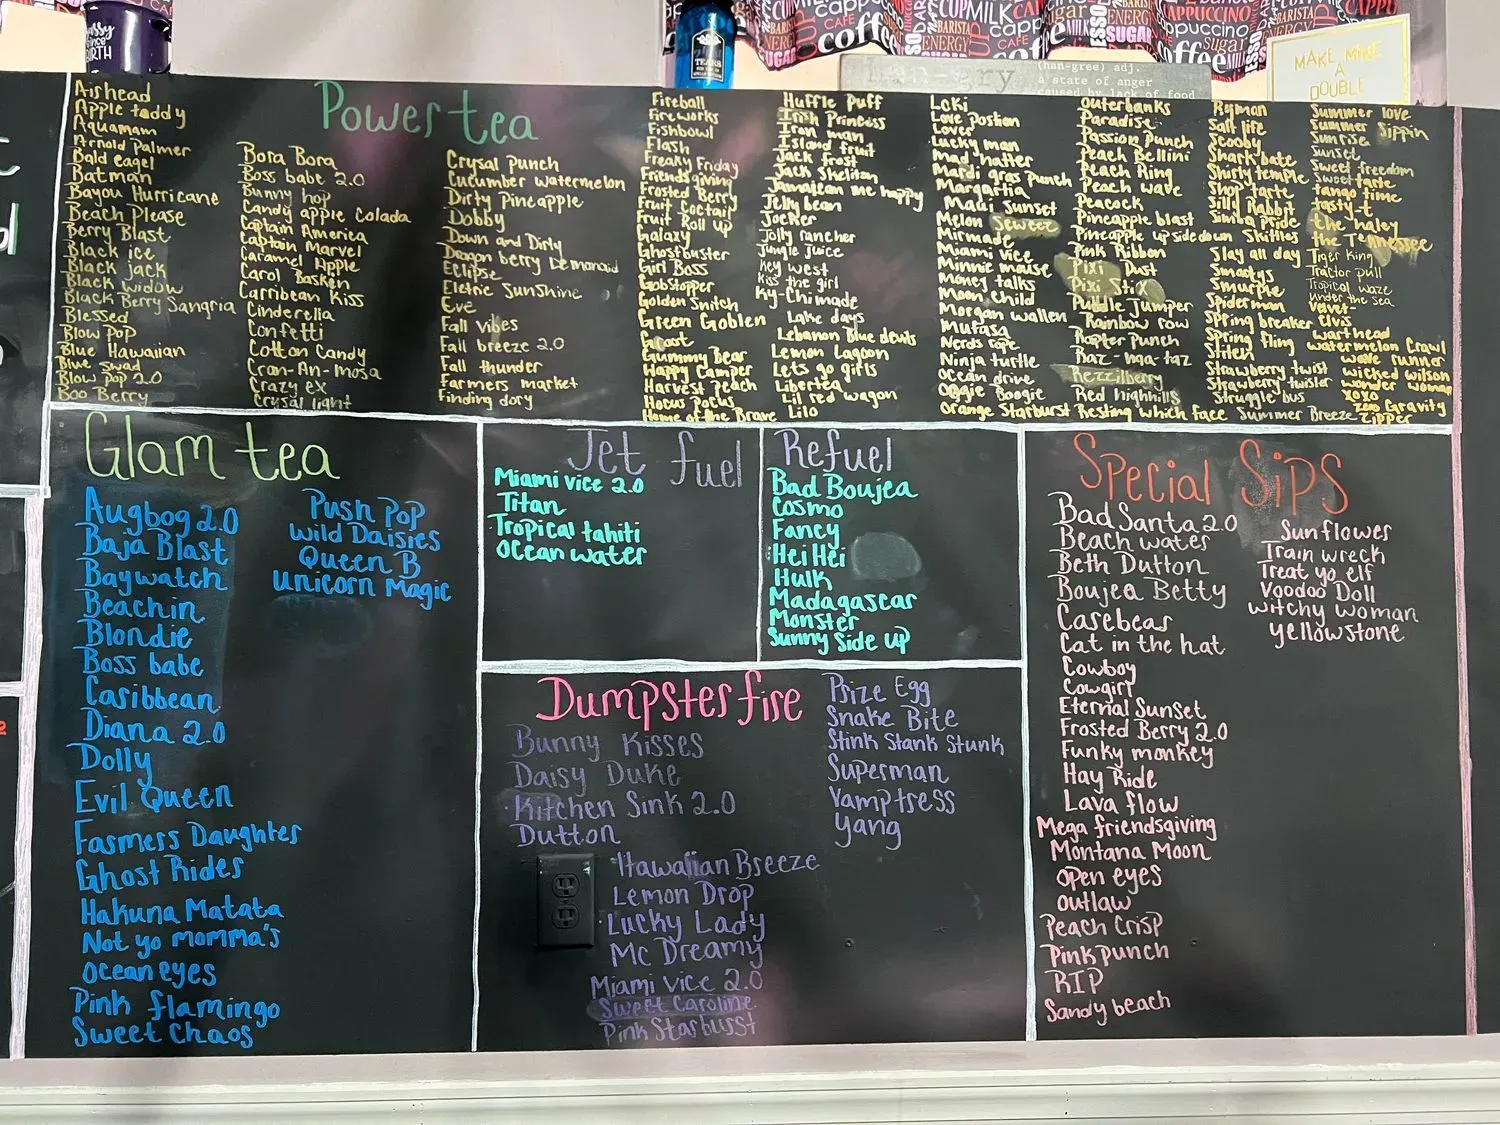 TEARS
CUP MILK
cappuccino
coffee
BARISTA
ENERGY
SUGAR
CAFE
(han-gree) adj.
a state of anger
caused by lack of food
MAKE MINE
A
DOUBLE
Power tea
Airhead
Apple toddy
Aquamam
Arnold Palmer
Bald eagel
Batman
Bayou Hurricane
Beach Please
Berry Blast
Black ice
Black jack
Black widow
Black Berry Sangria
Blessed
Blow Pop
Blue Hawaiian
Blue swad
Blow pop 2.0
Boo Berry
Bora Bora
Boss babe 2.0
Bunny hop
Candy apple Colada
Captain America
Captain Marvel
Caramel Apple
Carol Basken
Carribean Kiss
Cinderella
Confetti
Cotton Candy
Cran-An-mosa
Crazy ex
Crysal light
Crysal punch
Cucumber watermelon
Dirty Pineapple
Dobby
Down and Dirty
Dragon berry Lemonaid
Eclipse
Eletric Sunshine
Eve
Fall vibes
Fall breeze 2.0
Fall thunder
Farmers market
Finding dory
Fireball
Fireworks
Fishbowl
Flash
Freaky Friday
Friendsgiving
Frosted Berry
Fruit Coctail
Fruit Roll up
Galaxy
Ghostbuster
Girl Boss
Gobstopper
Golden Snitch
Green Goblen
Groot
Gummy Bear
Happy Camper
Harvest Peach
Hocus Pocus
Home of the Brave
Huffle Puff
Irish Princess
Iron man
Island fruit
Jack frost
Jack Skeliton
Jamaican me happy
Jelly bean
Joeker
Jolly rancher
Jungle juice
Key west
Kiss the girl
Ky-Chimade
Lake days
Lebanon Blue devils
Lemon Lagoon
Lets go girls
Libertea
Lil red wagon
Lilo
Loki
Love Postion
Lover
Lucky man
Mad hatter
Mardi gras punch
Margartia
Maui Sunset
Melon Sweet
Mirmade
Miami vice
Minnie mouse
Money talks
Moon child
Morgan wallen
Mufasa
Nerds rope
Ninja turtle
Ocean drive
Oggie Boogie
Orange Starburst
Outerbanks
Paradise
Passion Punch
Peach Bellini
Peach Ring
Peach wave
Peacock
Pineapple blast
Pineapple upside down
Pink Ribbon
Pixi Dust
Pixi Stix
Puddle Jumper
Rainbow row
Rapter Punch
Raz-ma-taz
Rezzilberry
Red highhills
Resting which face
Ryman
Salt life
Scooby
Shark bate
Shirly temple
Shop tarte
Silly Rabbit
Simba Pride
Skittles
Slay all day
Smartys
Smurple
Spiderman
Spring breaker
Spring fling
Stilen
Strawberry twist
Strawberry twister
Struggle bus
Summer Breeze
Summer love
Summer Sippin
Sunrise
Sunset
Sweet freedom
Sweet tarte
tango time
tasty-t
the haley
the Tennessee
Tiger King
Tractor pull
Tropical waze
Under the sea
Velvet-
elvis
wart head
watermelon Crawl
wave runner
wicked wilson
wonder woman
xoxo
Zero Gravity
Zipper
Glam tea
Augbog 2.0
Baja Blast
Baywatch
Beachin
Blondie
Boss babe
Caribbean
Diana 2.0
Dolly
Evil Queen
Farmers Daughter
Ghost Rides
Hakuna Matata
Not yo momma's
Ocean eyes
Pink flamingo
Sweet Chaos
Push Pop
Wild Daisies
Queen B
Unicorn Magic
Jet fuel
Miami vice 2.0
Titan
Tropical tahiti
Ocean water
Refuel
Bad Boujea
Cosmo
Fancy
Hei Hei
Hulk
Madagascar
Monster
Sunny Side up
Dumpster fire
Bunny Kisses
Daisy Duke
Kitchen Sink 2.0
Dutton
Hawaiian Breeze
Lemon Drop
Lucky Lady
Mc Dreamy
Miami Vice 2.0
Sweet Caroline
Pink Starburst
Prize Egg
Snake Bite
Stink Stank Stunk
Superman
Vamptress
Yang
Special Sips
Bad Santa 2.0
Beach water
Beth Dutton
Boujea Betty
Carebear
Cat in the hat
Cowboy
Cowgirl
Eternal Sunset
Frosted Berry 2.0
Funky monkey
Hay Ride
Lava flow
Mega friendsgiving
Montana Moon
Open eyes
Outlaw
Peach Crisp
Pink punch
RIP
Sandy beach
Sunflower
Train wreck
Treat yo elf
Voodoo Doll
Witchy woman
Yellowstone